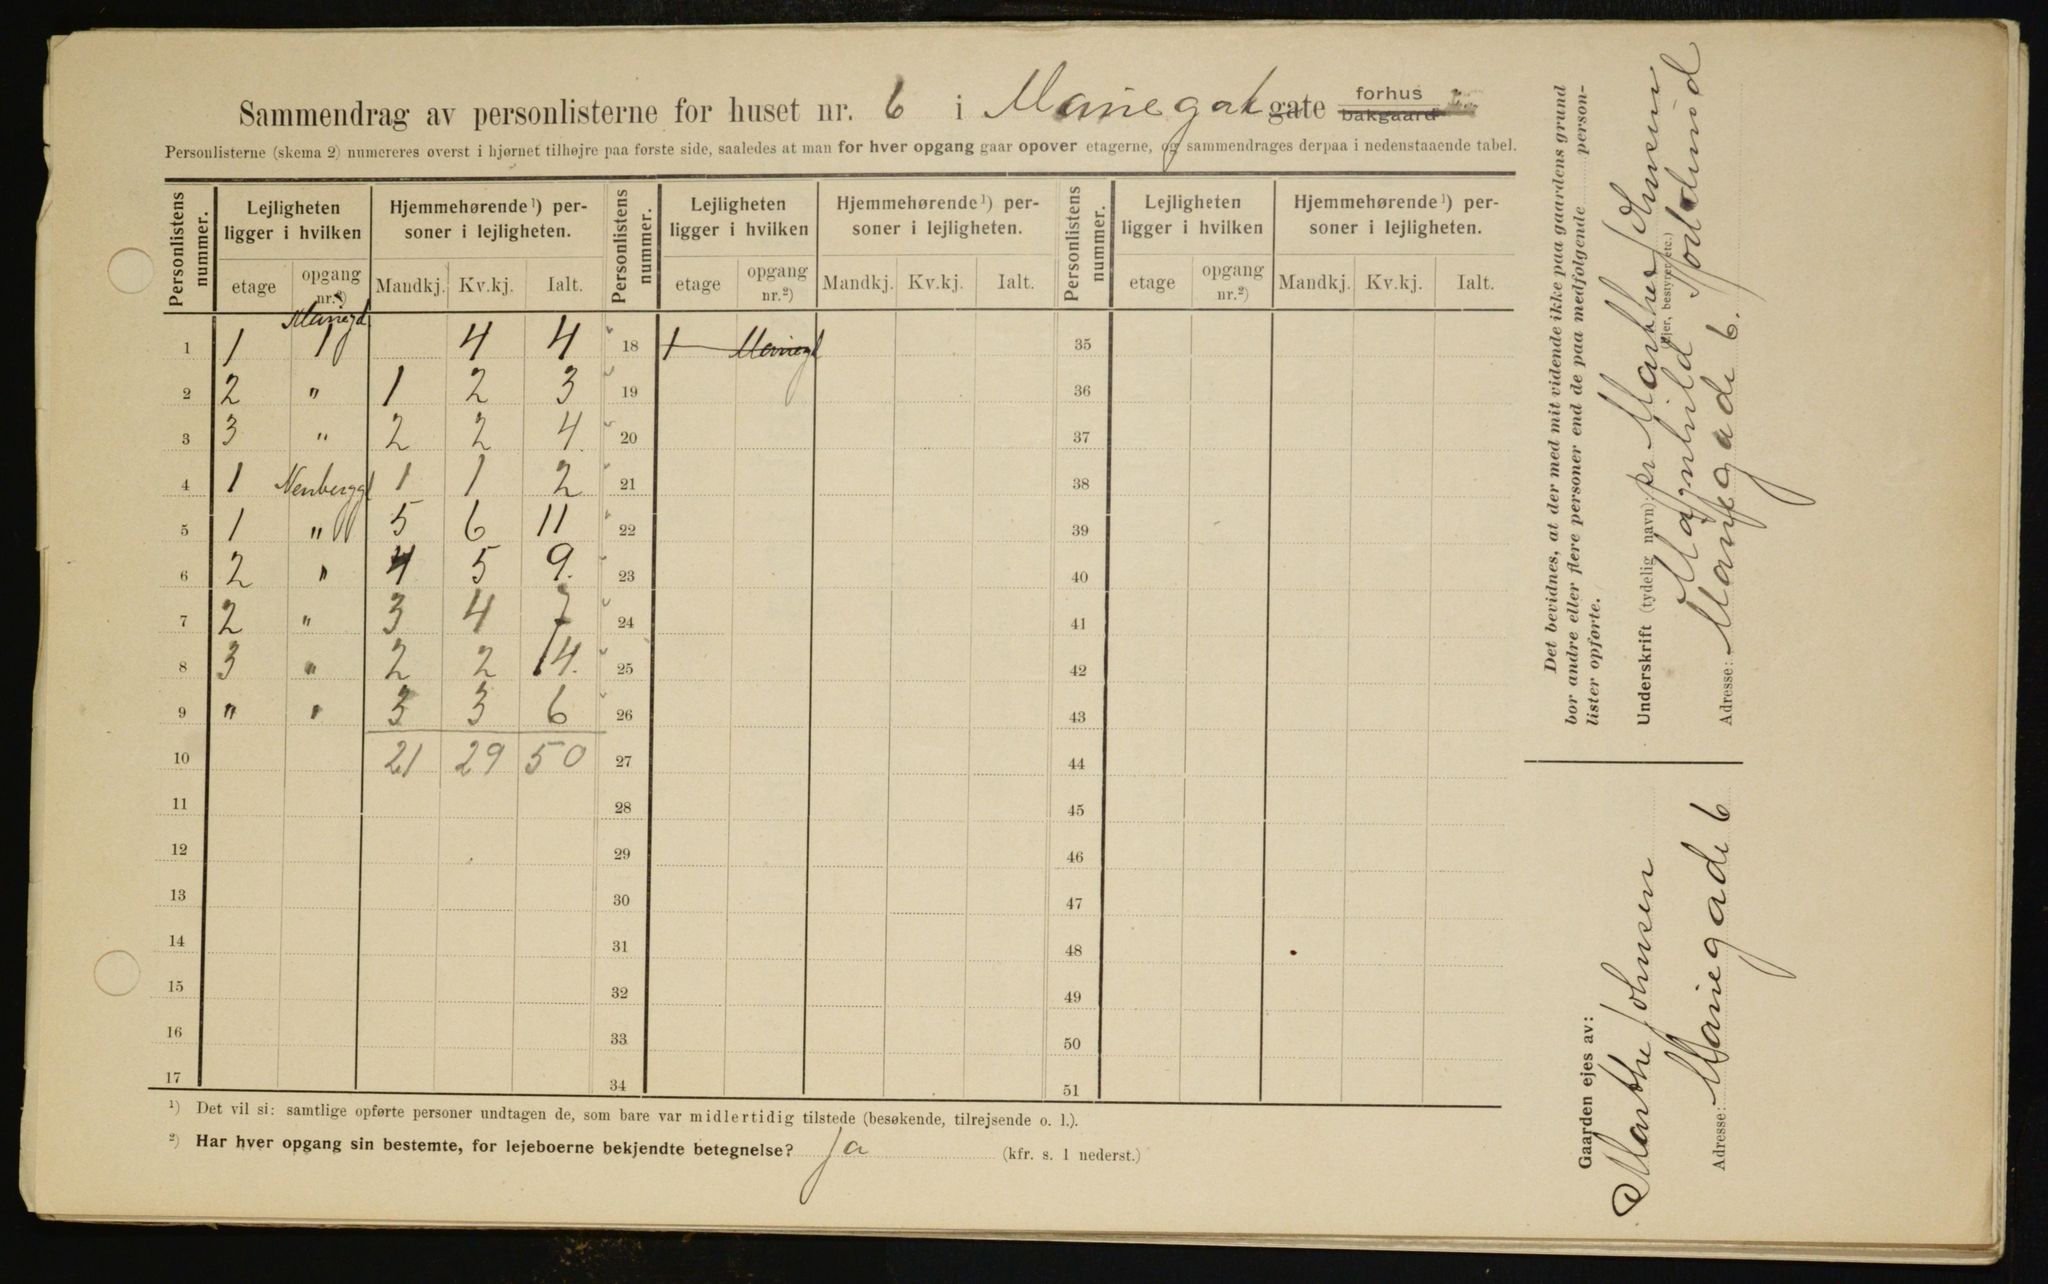 Sammendrag av personlisterne for huset nr. 6 i Mariegat gate forhus bakgaard
Personlisterne (skema 2) numereres øverst i hjørnet tilhøjre paa første side, saaledes at man for hver opgang gaar opover etagerne, og sammendrages derpaa i nedenstaaende tabel.
Personlistens nummer. Lejligheten ligger i hvilken Hjemmehørende ¹) personer i lejligheten. Personlistens nummer. Lejligheten ligger i hvilken Hjemmehørende ¹) personer i lejligheten. Personlistens nummer. Lejligheten ligger i hvilken Hjemmehørende ¹) personer i lejligheten.
etage opgang nr.²) Mandkj. Kv.kj. Ialt. etage opgang nr.²) Mandkj. Kv.kj. Ialt. etage opgang nr.²) Mandkj. Kv.kj. Ialt.
Mariegd
1 1 1 4 4 18 1 Mariegd 35
2 2 " 1 2 3 19 36
3 3 " 2 2 4. 20 37
4 1 Nenberggd 1 1 2 21 38
5 1 " 5 6 11 22 39
6 2 " 4 5 9. 23 40
7 2 " 3 4 7 24 41
8 3 " 2 2 4. 25 42
9 " " 3 3 6 26 43
10 21 29 50 27 44
11 28 45
12 29 46
13 30 47
14 31 48
15 32 49
16 33 50
17 34 51
¹) Det vil si: samtlige opførte personer undtagen de, som bare var midlertidig tilstede (besøkende, tilrejsende o. l.).
²) Har hver opgang sin bestemte, for lejeboerne bekjendte betegnelse? Ja (kfr. s. 1 nederst.)
Det bevidnes, at der med mit vidende ikke paa gaardens grund
bor andre eller flere personer end de paa medfølgende person-
lister opførte.
Underskrift (tydelig navn): pr Marthe Johnsen
(Ejer, bestyrer etc.)
Magnhild
Adresse: Mariegade 6.
Gaarden ejes av:
Marthe Johnsen
Adresse: Mariegade 6